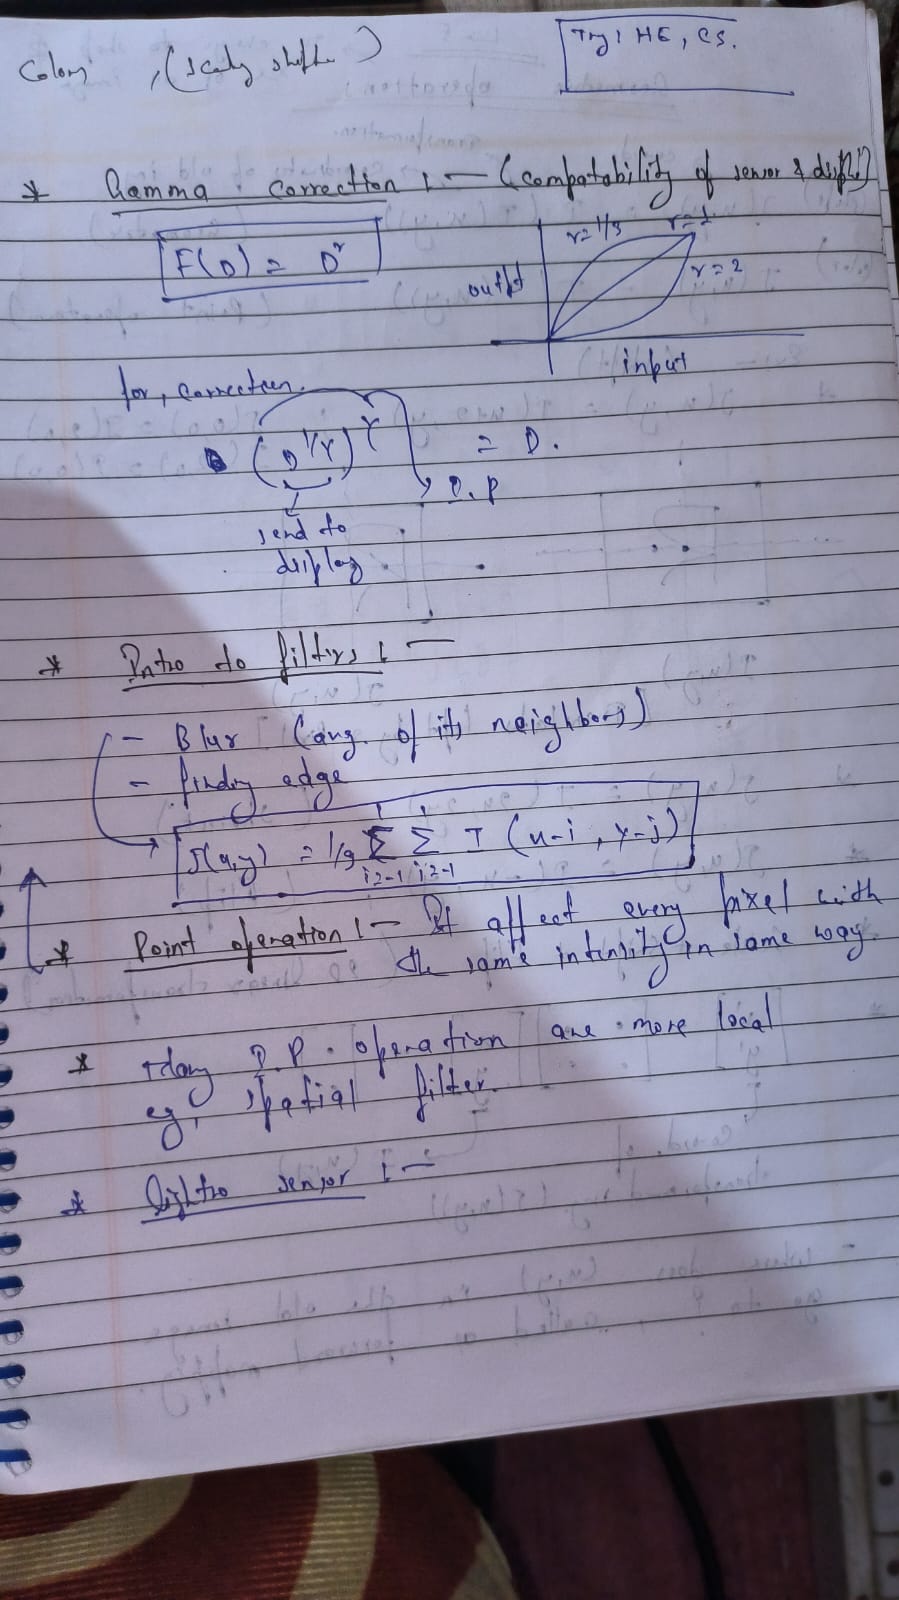 Try! HE, CS.
Colors, (scaling shift)
* Gamma correction :- (compatability of sensor & display)
F(D) = D^γ
γ=1/3 γ=1
γ=2
output
input
for, correction.
(D^1/γ)^γ = D.
D.P
send to
display
* Intro to filters :-
- Blur (avg. of its neighbors)
- finding edge
J(x,y) = 1/9 Σ Σ I (x-i, y-j)
1 1
i=-1 j=-1
* Point operation :- It affect every pixel with
the same intensity in same way.
* Many D.P. operation are more local
eg, spatial filter.
* sensor :-